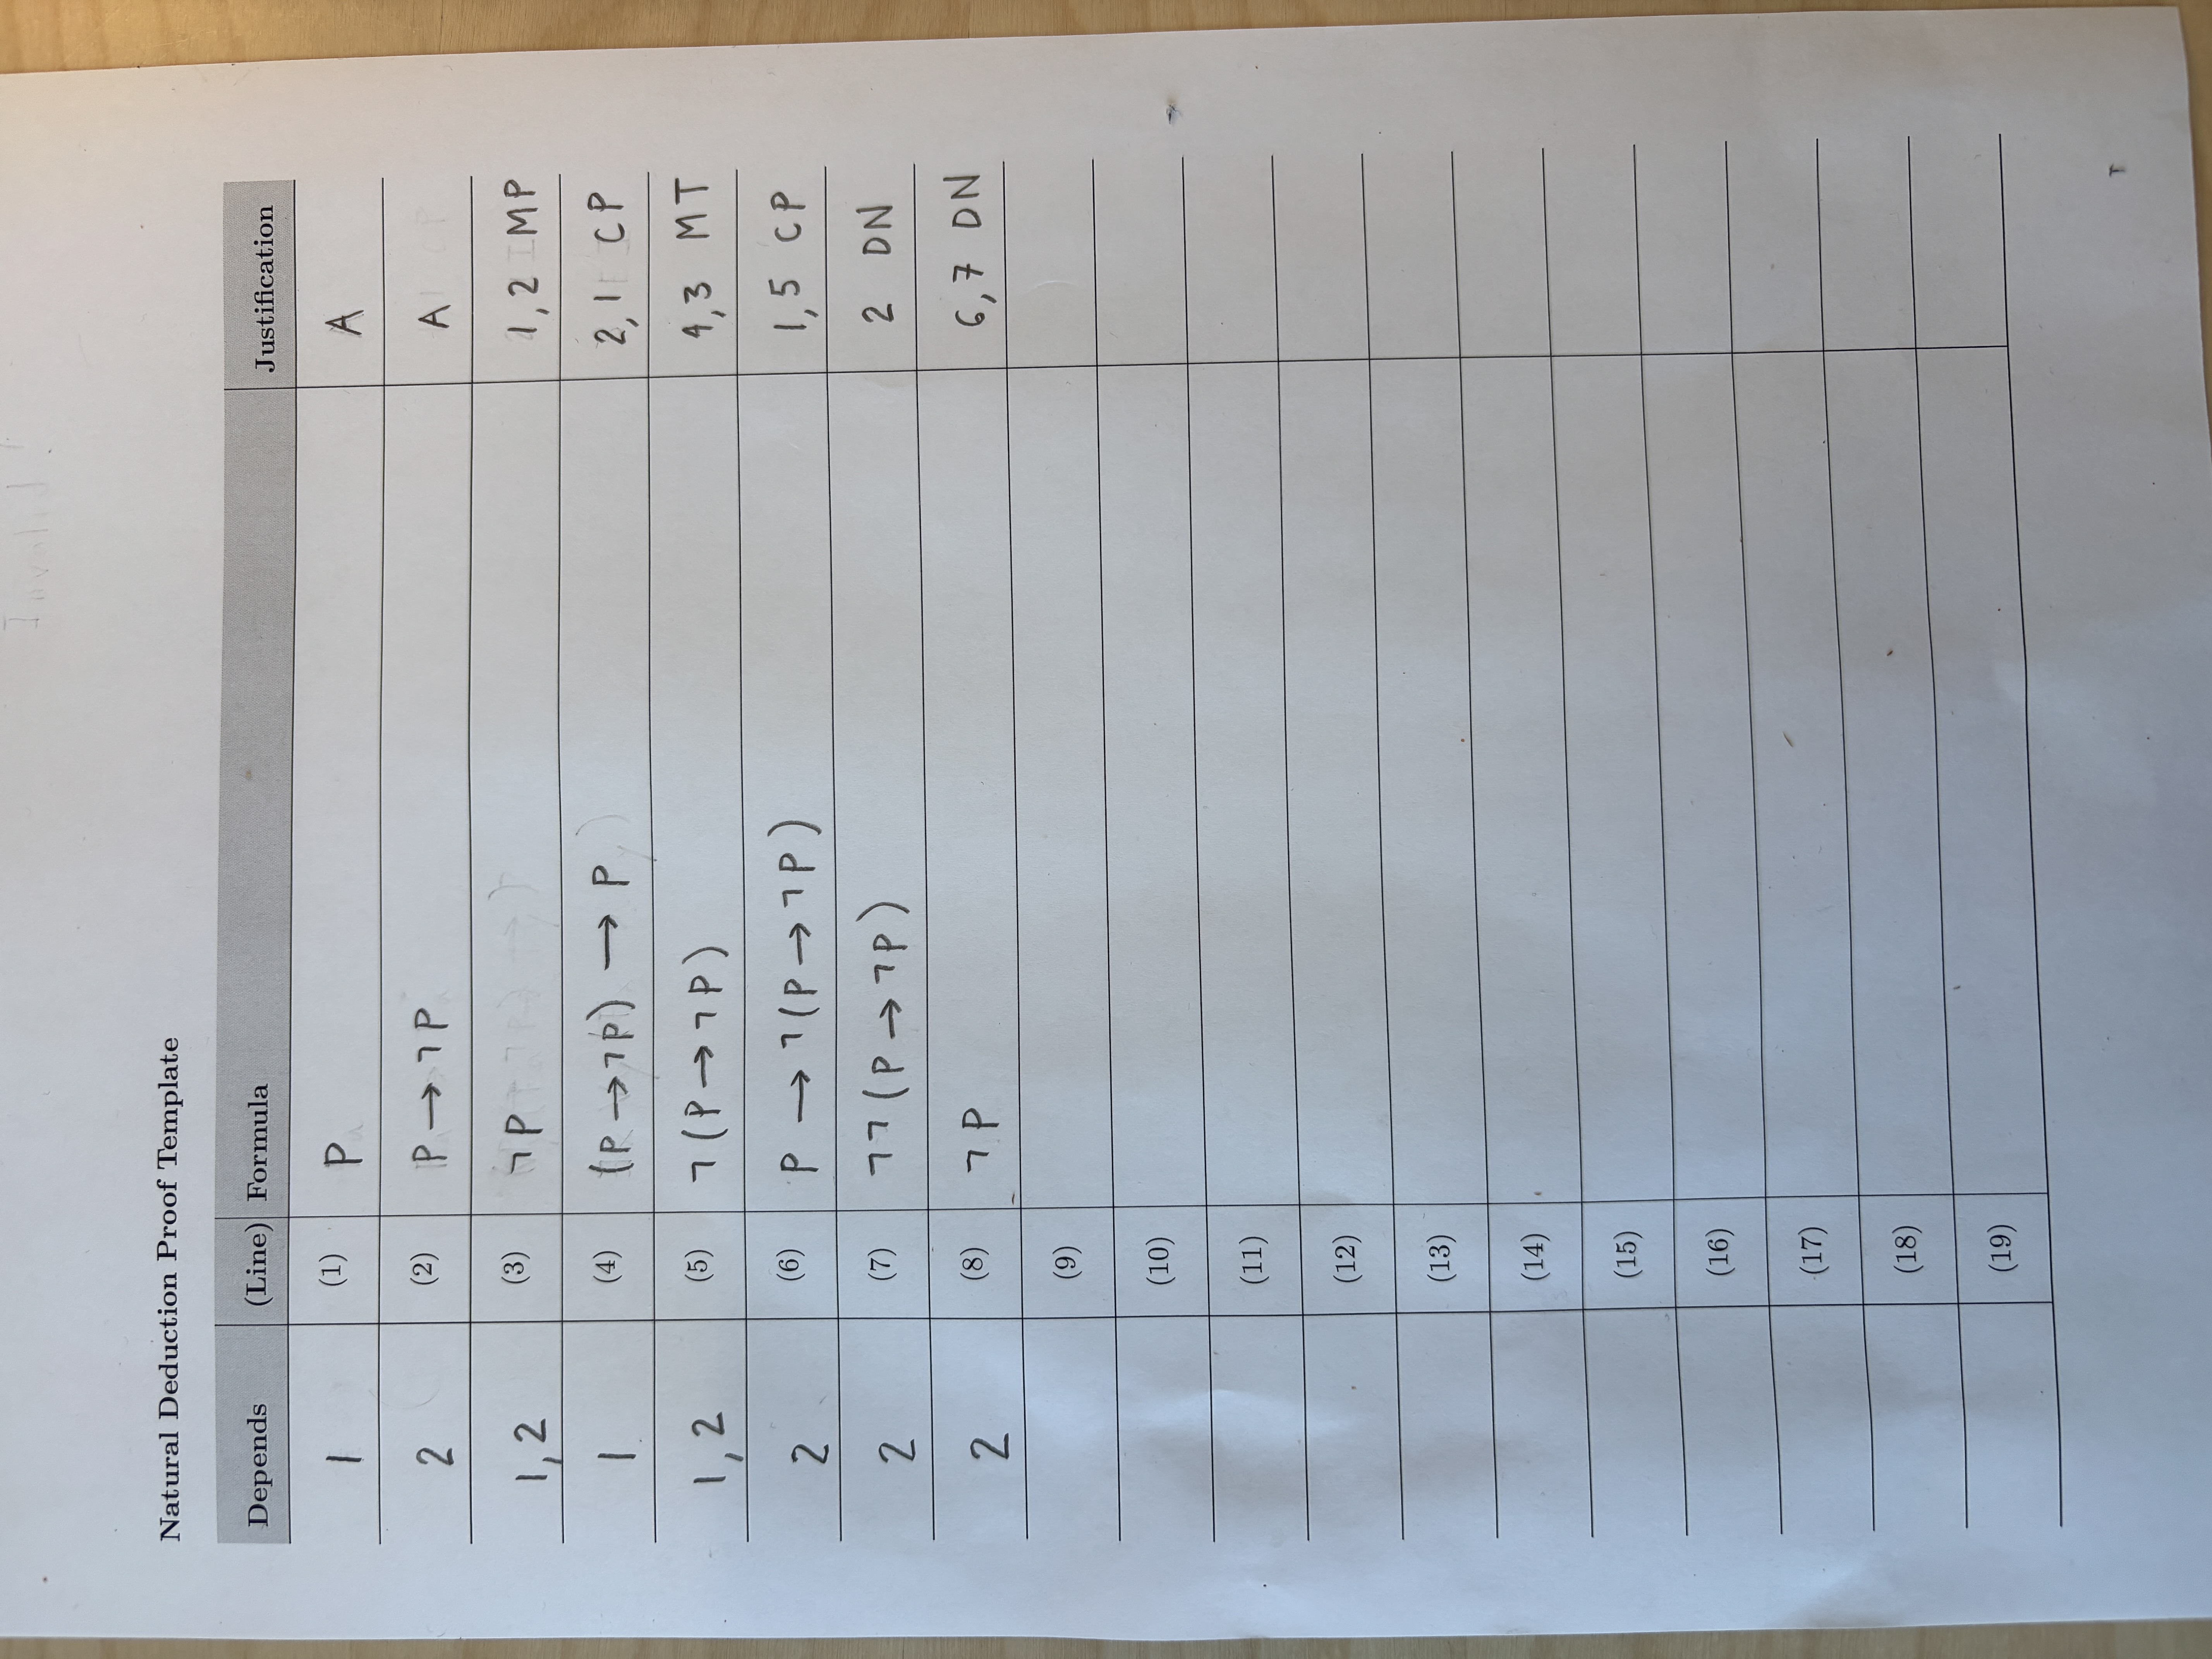 Natural Deduction Proof Template
Depends (Line) Formula Justification
1 (1) P A
2 (2) P → ¬P A
1,2 (3) ¬P 1,2 MP
1 (4) (P → ¬P) → P 2,1 CP
1,2 (5) ¬(P → ¬P) 4,3 MT
2 (6) P → ¬(P → ¬P) 1,5 CP
2 (7) ¬¬(P → ¬P) 2 DN
2 (8) ¬P 6,7 DN
(9)
(10)
(11)
(12)
(13)
(14)
(15)
(16)
(17)
(18)
(19)